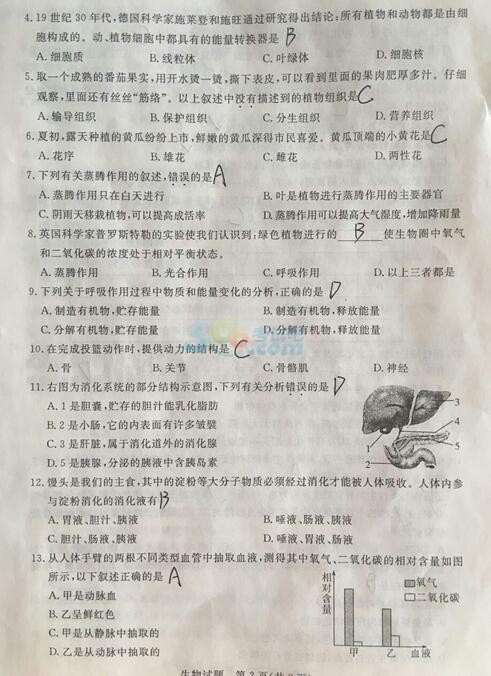 4. 19世纪30年代,德国科学家施莱登和施旺通过研究得出结论:所有植物和动物都是由细
胞构成的。动、植物细胞中都具有的能量转换器是 B
A. 细胞质 B. 线粒体 C. 叶绿体 D. 细胞核
5. 取一个成熟的番茄果实,用开水烫一烫,撕下表皮,可以看到里面的果肉肥厚多汁。仔细
观察,里面还有丝丝“筋络”。以上叙述中没有描述到的植物组织是 C
A. 输导组织 B. 保护组织 C. 分生组织 D. 营养组织
6. 夏初,露天种植的黄瓜纷纷上市,鲜嫩的黄瓜深得市民喜爱。黄瓜顶端的小黄花是 C
A. 花序 B. 雄花 C. 雌花 D. 两性花
7. 下列有关蒸腾作用的叙述,错误的是 A
A. 蒸腾作用只在白天进行 B. 叶是植物进行蒸腾作用的主要器官
C. 阴雨天移栽植物,可以提高成活率 D. 蒸腾作用可以提高大气湿度,增加降雨量
8. 英国科学家普罗斯特勒的实验使我们认识到,绿色植物进行的 B 使生物圈中氧气
和二氧化碳的浓度处于相对平衡状态。
A. 蒸腾作用 B. 光合作用 C. 呼吸作用 D. 以上三者都是
9. 下列关于呼吸作用过程中物质和能量变化的分析,正确的是 D
A. 制造有机物,贮存能量 B. 制造有机物,释放能量
C. 分解有机物,贮存能量 D. 分解有机物,释放能量
10. 在完成投篮动作时,提供动力的结构是 C
A. 骨 B. 关节 C. 骨骼肌 D. 神经
11. 右图为消化系统的部分结构示意图,下列有关分析错误的是 D
A. 1是胆囊,贮存的胆汁能乳化脂肪
B. 2是小肠,它的内表面有许多皱襞
C. 3是肝脏,属于消化道外的消化腺
D. 5是胰腺,分泌的胰液中含胰岛素
3
4
5
1
2
12. 馒头是我们的主食,其中的淀粉等大分子物质必须经过消化才能被人体吸收。人体内参
与淀粉消化的消化液有 B
A. 胃液、胰液 B. 唾液、肠液、胰液
C. 胆汁、肠液、胰液 D. 唾液、胃液、肠液
13. 从人体手臂的两根不同类型血管中抽取血液,测得其中氧气、二氧化碳的相对含量如图
所示,以下叙述正确的是 A
A. 甲是动脉血
B. 乙呈鲜红色
C. 甲是从静脉中抽取的
D. 乙是从动脉中抽取的
相对含量
氧气
二氧化碳
甲 乙 血液